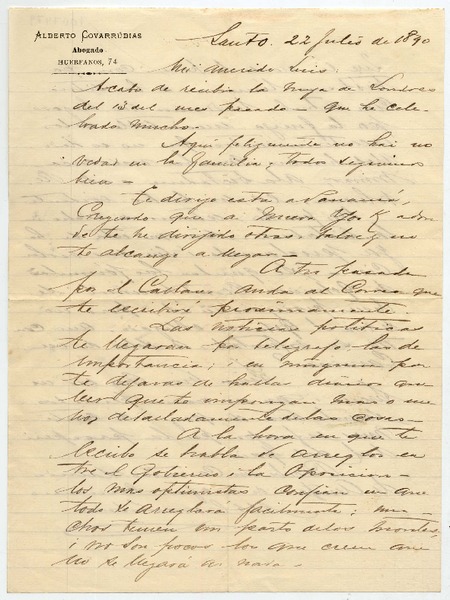 ALBERTO COVARRÚBIAS
Abogado
HUÉRFANOS, 74
Santo. 22 Julio de 1890
Mi querido Luis:
Acabo de recibir la tuya de Londres
del 13 del mes pasado que he cele-
brado mucho.
Aqui felizmente no hai no
vedad en la familia i todos seguimos
bien —
Te dirijo esta a Panamá,
Creyendo que a Nueva York adon
de te he dirijido otras, talvez no
te alcance a llegar —
A tu pasada
por el Callao
te escribiré proximamente.
Las noticias politicas
te llegarán por telegrafo las de
importancia; i en ninguna par
te dejaras de hallar diarios
que te impongan mas o me
nos detalladamente de las cosas —
A la hora en que te
escribo se habla de arreglos en
tre el Gobierno i la Oposicion —
los mas optimistas confian en que
todo se arreglara facilmente; mu
chos temen un parto de los montes
i no son pocos los que creen que
no se llegará a nada —